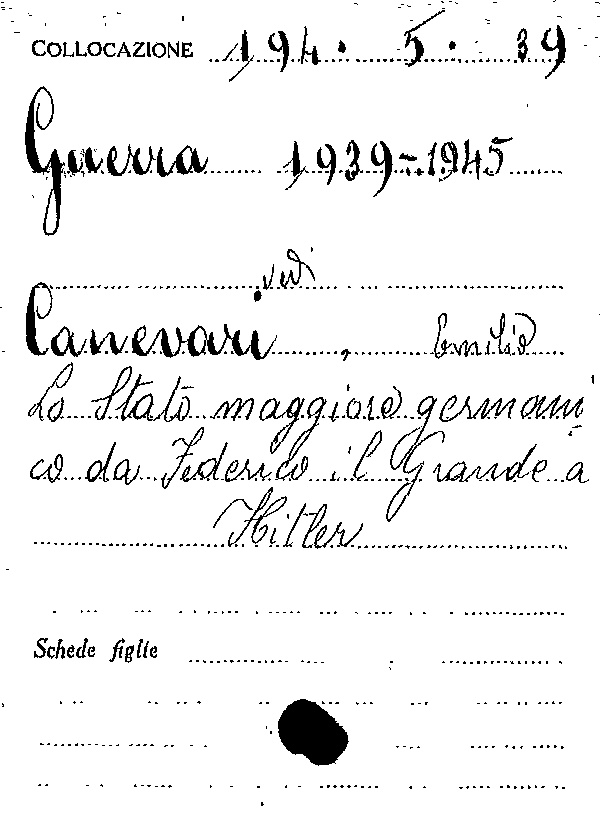 COLLOCAZIONE 194. 5. 39
Guerra 1939-1945
vedi
Canevari, Emilio
Lo Stato maggiore germani
co da Federico il Grande a
Hitler
Schede figlie